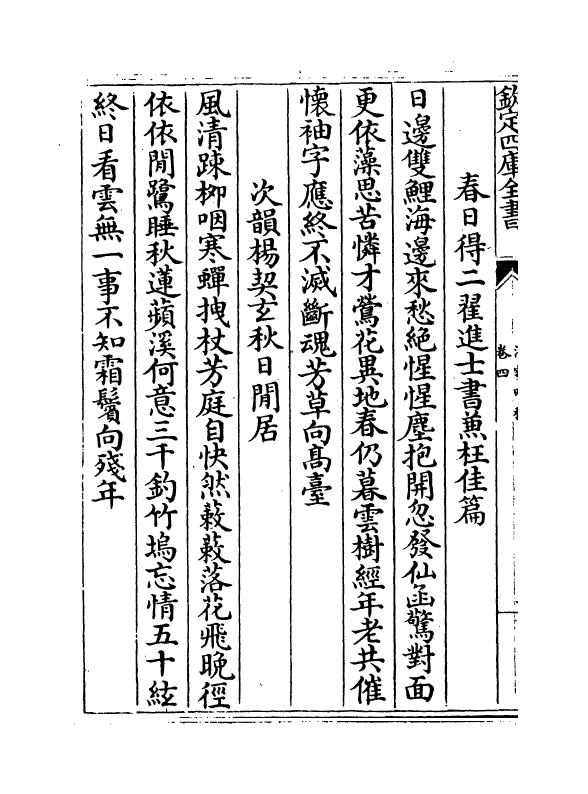 欽定四庫全書
卷四
春日得二翟進士書兼枉佳篇
日邊雙鯉海邊來愁絶惺惺塵抱開忽發仙函驚對面
更依藻思苦憐才鶯花異地春仍暮雲樹經年老共催
懷袖字應終不滅斷魂芳草向髙臺
次韻楊契玄秋日閒居
風清踈栁咽寒蟬拽杖芳庭自快然蔌蔌落花飛晚徑
依依閒鷺睡秋蓮蘋溪何意三千釣竹塢忘情五十絃
終日看雲無一事不知霜鬢向殘年